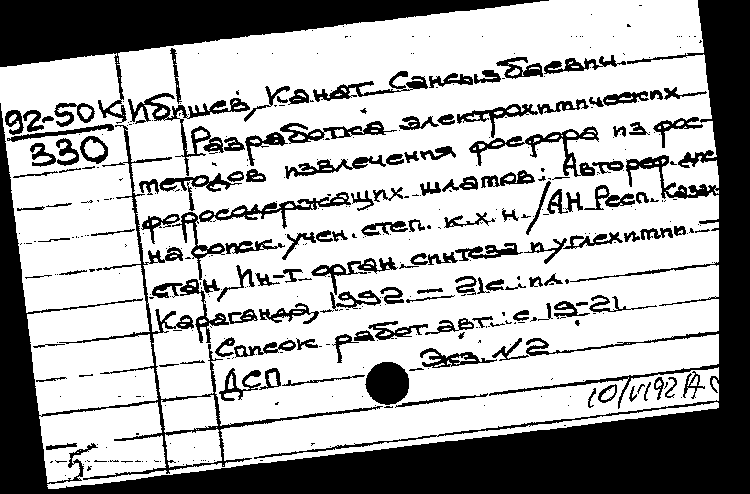 92-50К
330
Ибишев, Канат Сансызбаевич.
Разработка электрохимических
методов извлечения фосфора из фос-
форосодержащих шламов: Автореф. дис.
на соиск. учен. степ. к.х.н. / АН Респ. Казах-
стан, Ин-т орган. синтеза и углехимии. —
Караганда, 1992. — 21с.: ил.
Список работ авт.: с. 19-21.
ДСП. Экз. N2.
5.